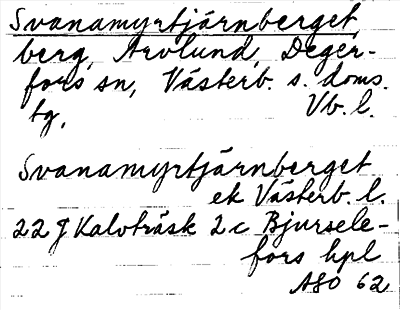 Svanamyrtjärnberget,
berg, Arvlund, Deger-
fors sn, Västerb. s. doms.
tg, Vb. l.
Svanamyrtjärnberget
ek Västerb. l.
22 J Kalvträsk 2 c Bjursele-
fors hpl
ASO 62